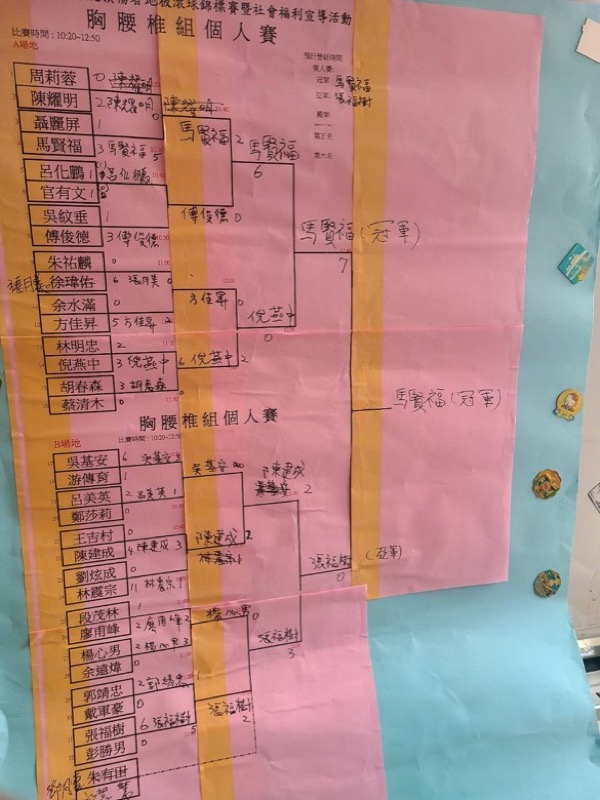 地板滾球錦標賽暨社會福利宣導活動
胸腰椎組個人賽
比賽時間：10:20~12:50
A場地
預計晉級時間
個人賽：
冠軍： 馬賢福
亞軍： 張福樹
季軍：
第五名：
第六名：
周莉蓉 0 陳耀明
陳耀明 2 陳耀明 0
聶麗屏 1
馬賢福 3 馬賢福 5
馬賢福 2 馬賢福 6
呂化鵬 1 呂化鵬
官有文 1
吳紋垂 1 傅俊德 0
傅俊德 3 傅俊德
馬賢福 (冠軍) 7
朱祐麟 0
徐瑋佑 6 張月美 0
張月美
余水滿 0 方佳昇 0
方佳昇 5 方佳昇 2
倪燕中 0
林明忠 2
倪燕中 3 倪燕中 6 倪燕中 2
胡春森 3 胡春森 0
蔡清木 0
馬賢福 (冠軍)
胸腰椎組個人賽
比賽時間：10:20~12:50
B場地
吳基安 6 吳基安
游傳育 1 吳基安
呂美英 2 呂美英 1
鄭莎莉 0
陳建成 2
王吉村 0
陳建成 4 陳建成 3 陳建成 2
劉炫成 0
林震宗 11 林震宗 1
張福樹 0 (亞軍)
段茂林 1
廖甬峰 2 廖甬峰 2
楊心男 0
楊心男 2 楊心男 3
余遠煒 0
張福樹 3
郭靖忠 2 郭靖忠 1
戴軍豪 0
張福樹 6 張福樹 5 張福樹 2
彭勝男 0
朱有田